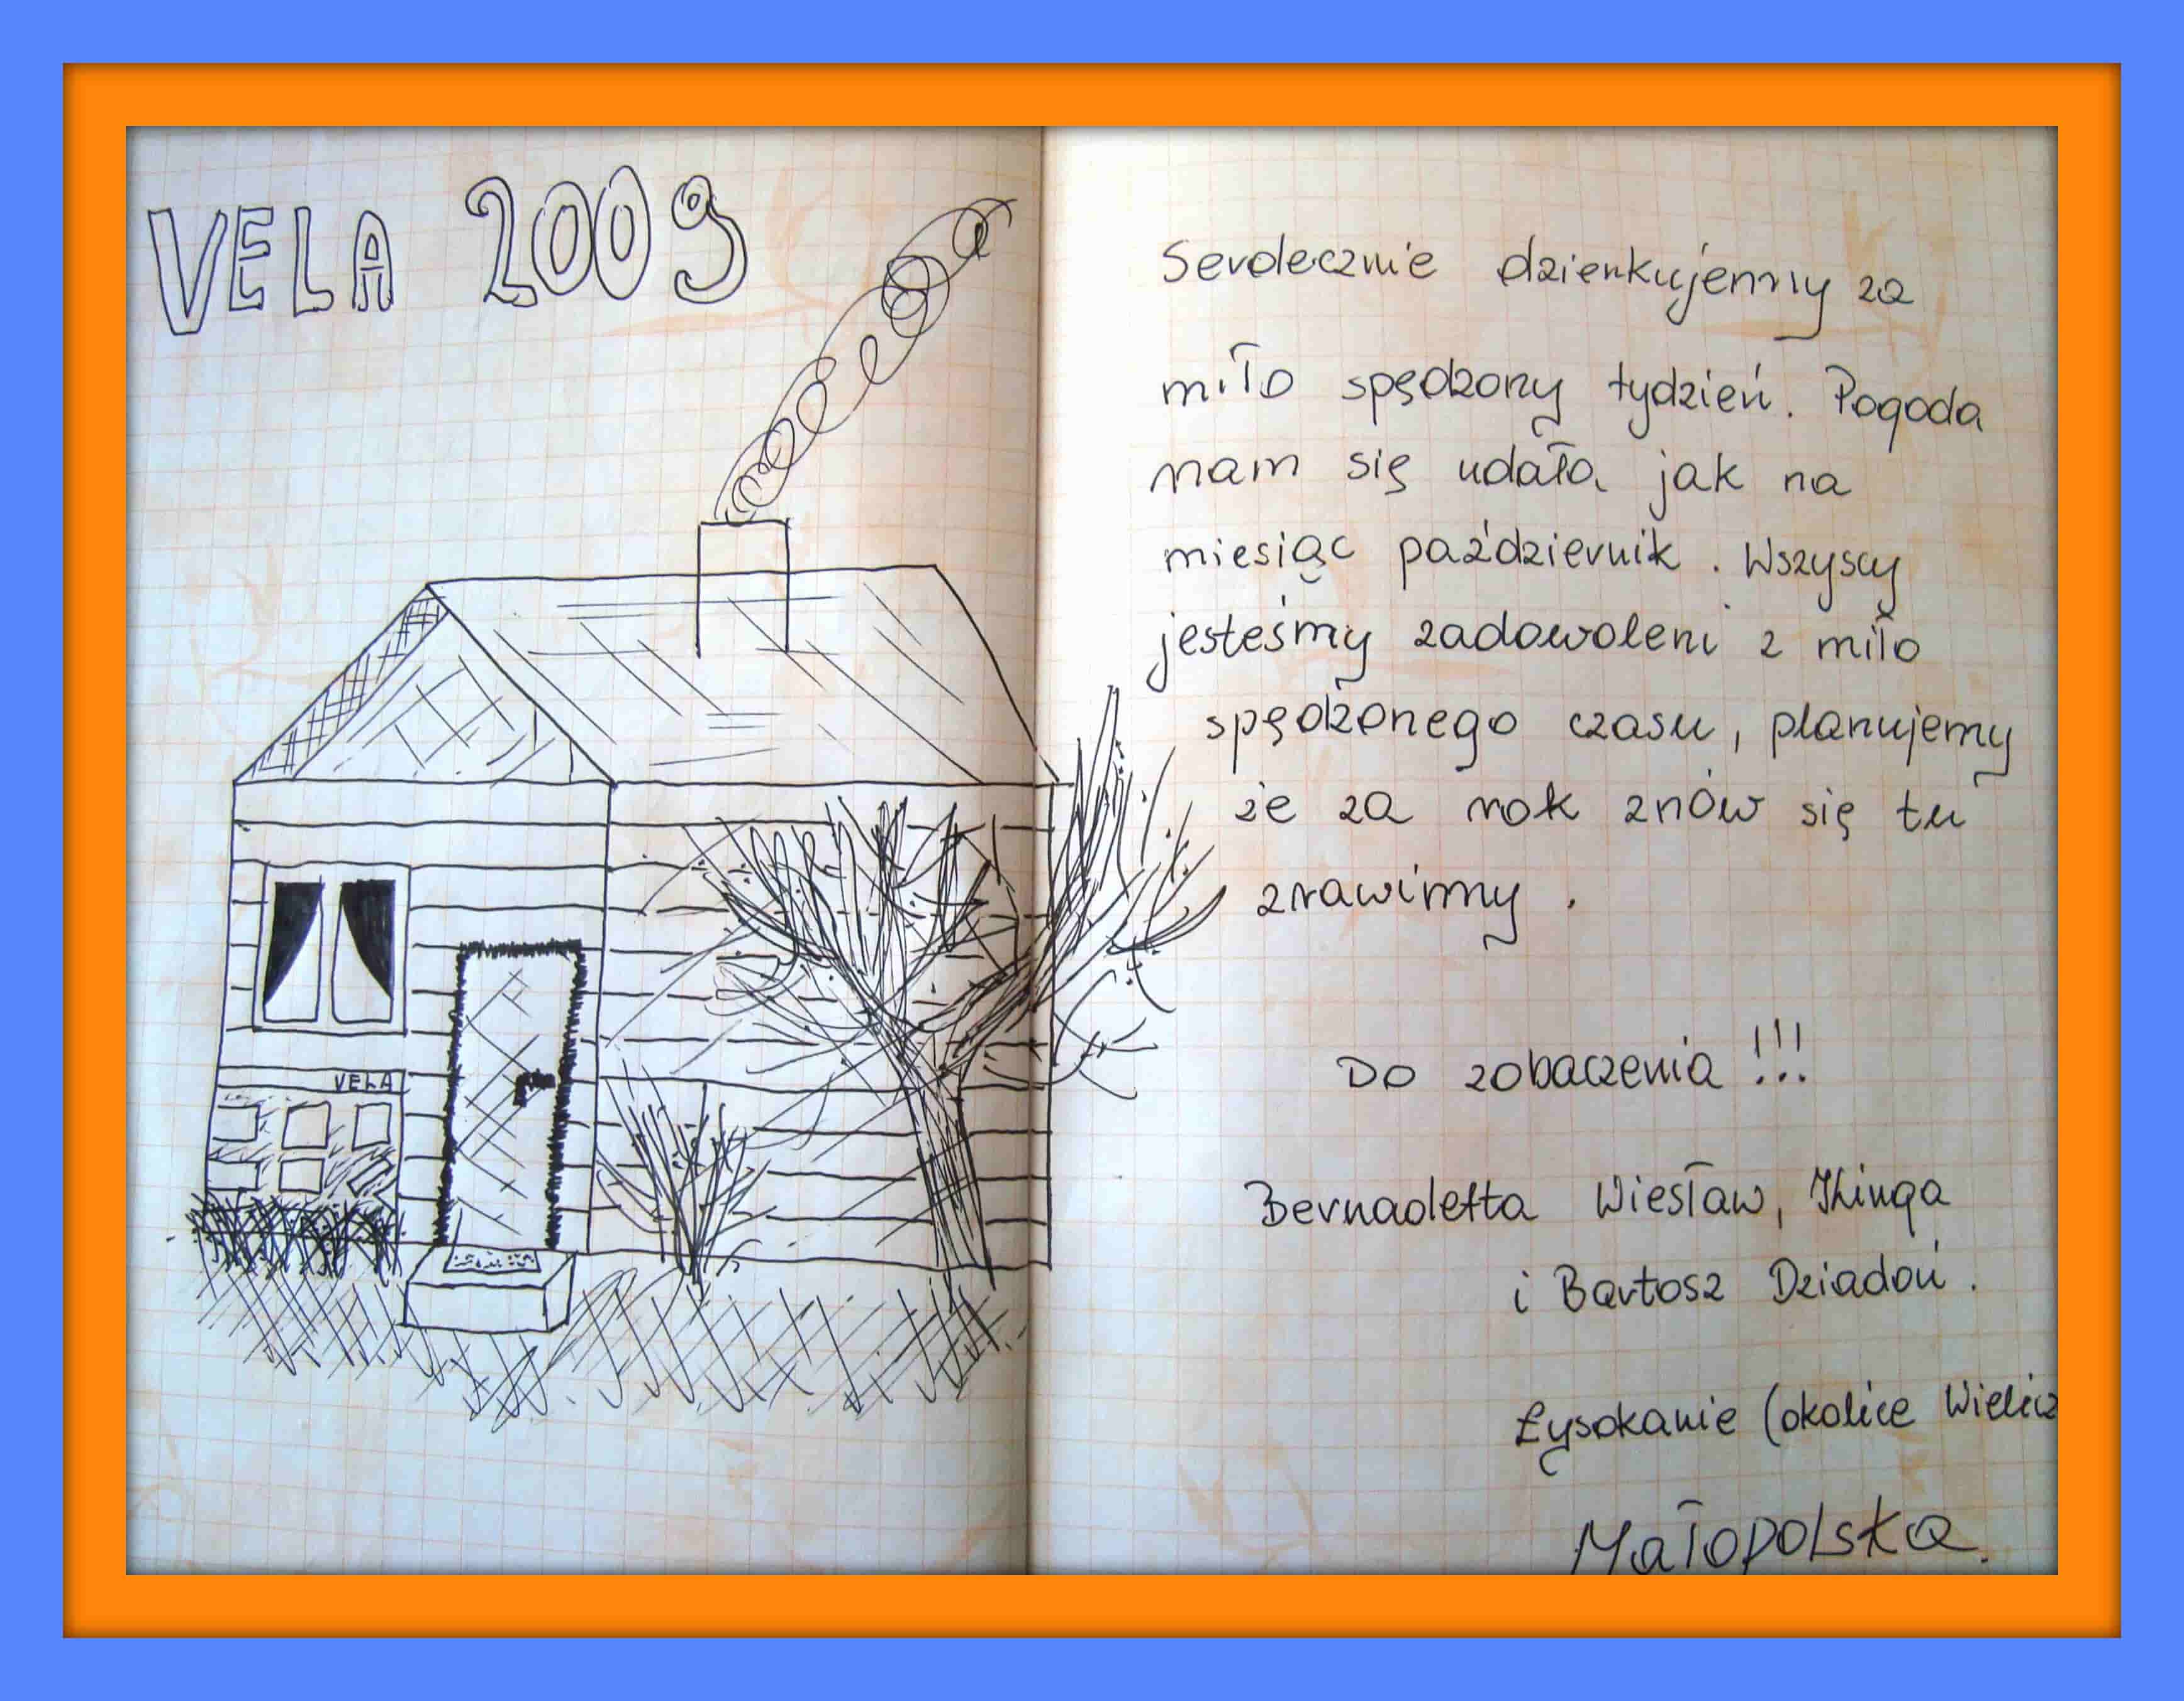 VELA 2009
VELA
Serdecznie dzienkujemy za
miło spędzony tydzień. Pogoda
nam się udała jak na
miesiąc październik. Wszyscy
jesteśmy zadowoleni z miło
spędzonego czasu, planujemy
że za rok znów się tu
zrawimy.
Do zobaczenia!!!
Bernadetta Wiesław, Kinga
i Bartosz Dziadoń.
Łysokanie (okolice Wielicz
Małopolska.